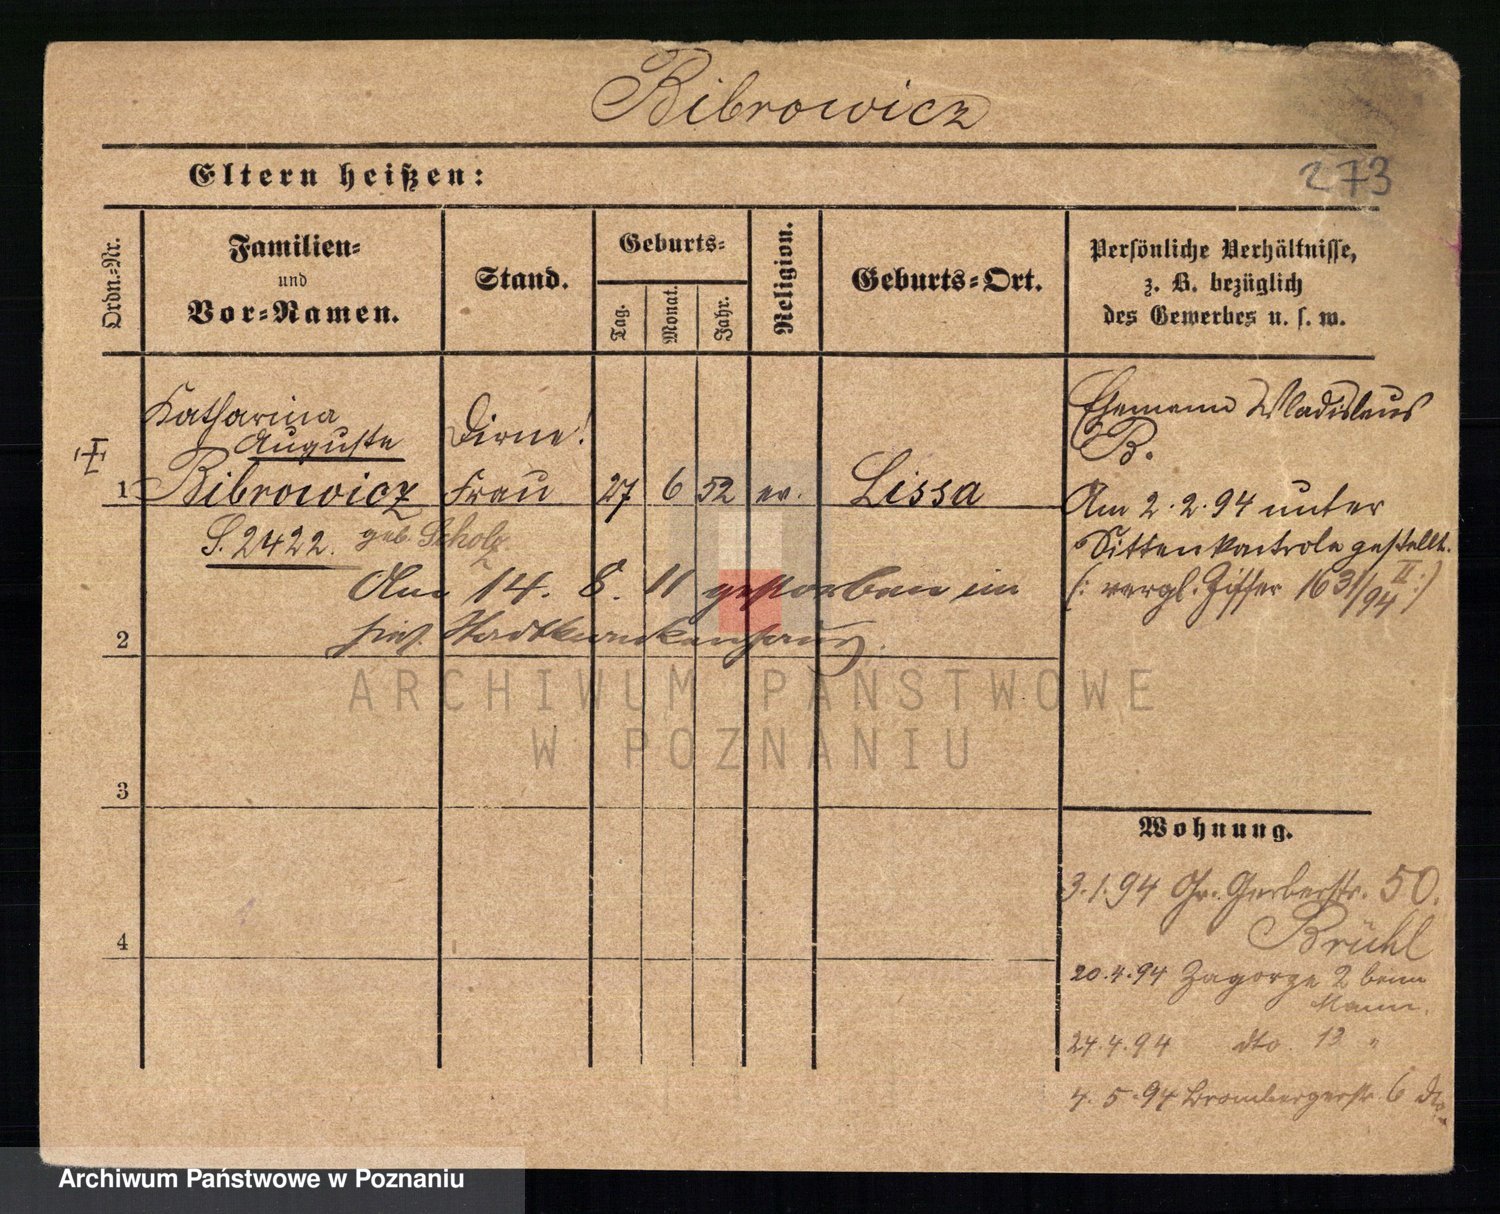 Bibrowicz
Eltern heißen:
273
Ordn.-Nr.
Familien-
und
Vor-Namen.
Stand.
Geburts-
Tag.
Monat.
Jahr.
Religion.
Geburts-Ort.
Persönliche Verhältnisse,
z. B. bezüglich
des Gewerbes u. s. w.
Katharina
Auguste
Dirne!
1 Bibrowicz Frau 27 6 52 ev. Lissa
S. 2422. geb. Scholz
Am 14. 8. 11 gestorben im
2 hies. Stadtkrankenhaus.
3
4
Ehemann Wladislaus
B.
Am 2. 2. 94 unter
Sittenkontrole gestellt.
(: vergl. Ziffer 1631/94 II :)
Wohnung.
3.1.94 Gr. Gerberstr. 50.
Brühl
20.4.94 Zagorze 2 beim
Mann.
24.4.94 dto. 13 "
4.5.94 Brombergerstr. 6
ARCHIWUM PAŃSTWOWE
W POZNANIU
Archiwum Państwowe w Poznaniu